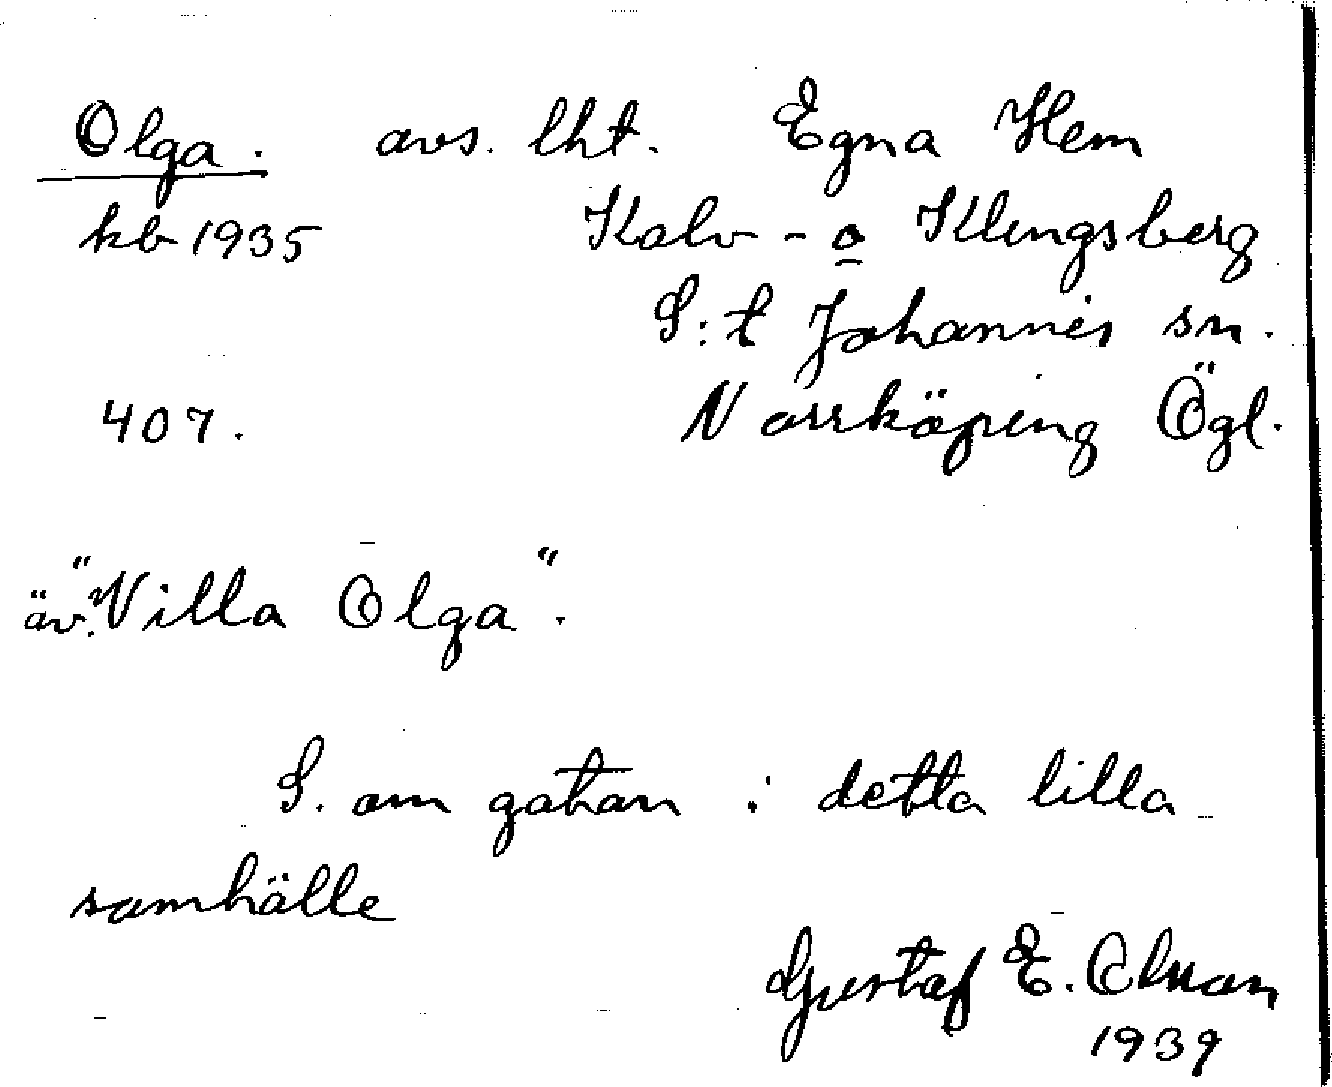 Olga. avs. lht. Egna Hem
kb 1935 Kalv- o Klingsberg
S:t Johannes sn.
407. Norrköping Ögl.
äv. "Villa Olga".
S. om gatan i detta lilla
samhälle
Gustaf E.
1939